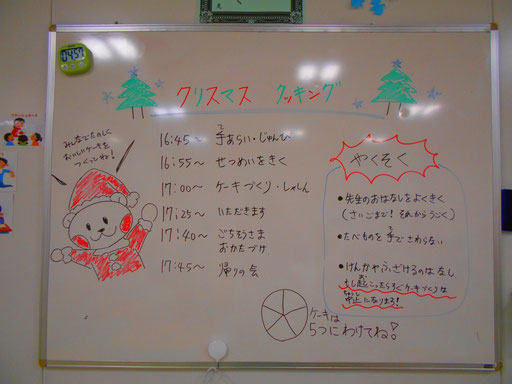 クリスマス クッキング
みんなでたのしく
おいしいケーキを
つくってね!
16:45~ 手あらい・じゅんび
16:55~ せつめいをきく
17:00~ ケーキづくり・しゃしん
17:25~ いただきます
17:40~ ごちそうさま
おかたづけ
17:45~ 帰りの会
やくそく
●先生のおはなしをよくきく
(さいごまで!それからうごく)
●たべものを手でさわらない
●けんかやふざけるのはなし
もし起こったらすぐケーキづくりは
中止になります!
ケーキは
5つにわけてね!